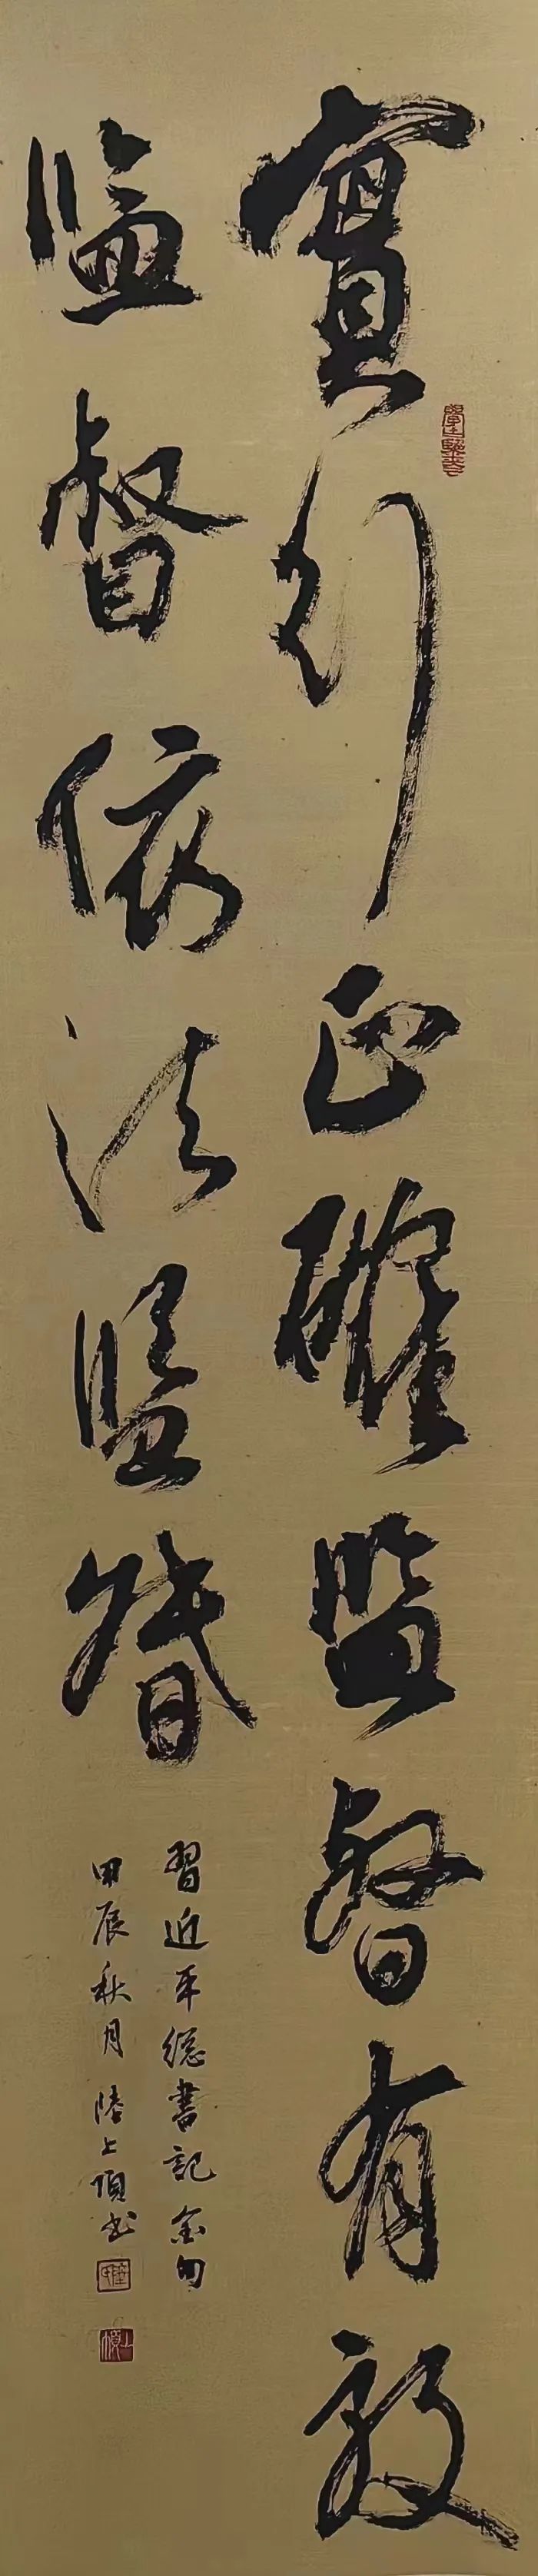 實行正確監督有效
監督依法監督
習近平總書記金句
甲辰秋月陸上項書